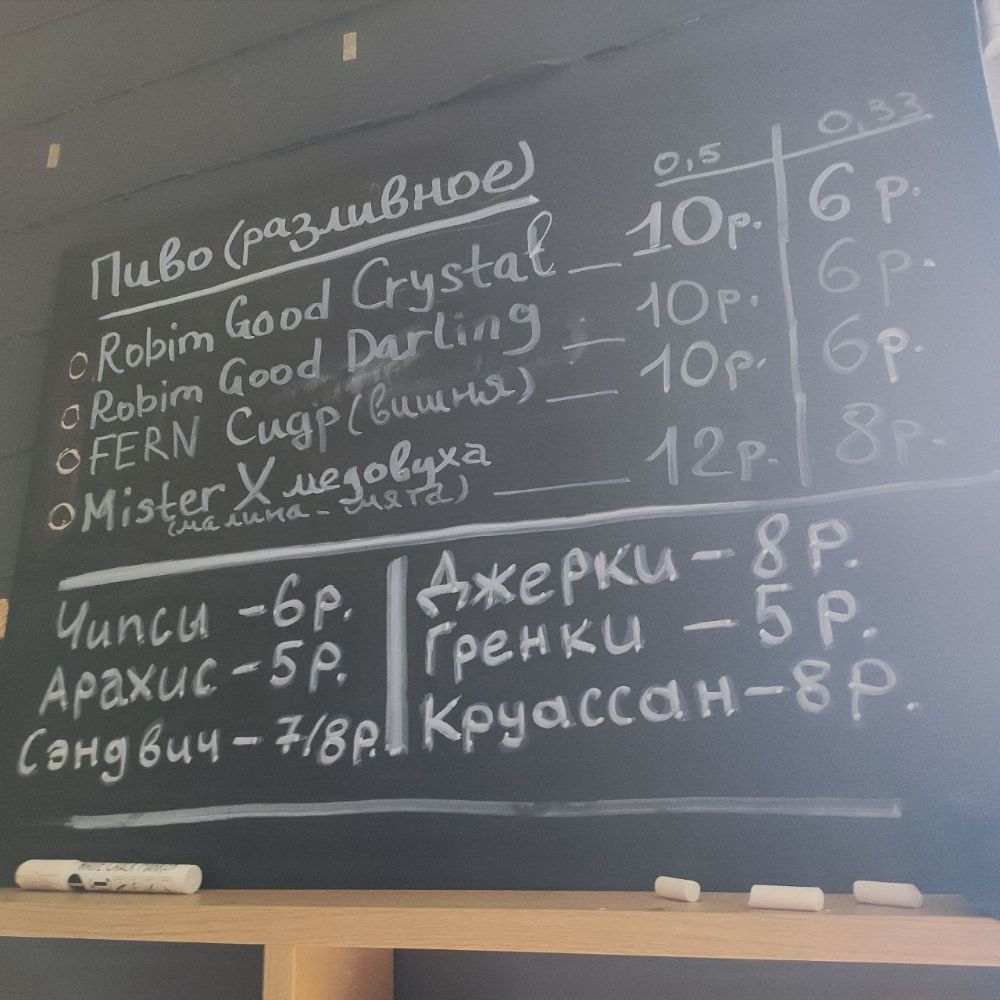 0,5 0,33
Пиво (разливное)
Robim Good Crystal — 10р. 6р.
Robim Good Darling — 10р. 6р.
FERN Сидр (вишня) — 10р. 6р.
Mister X медовуха
(малина - мята) — 12р. 8р.
Чипси - 6р.
Арахис - 5р.
Сэндвич - 7/8р.
Джерки - 8р.
Гренки - 5р.
Круассан - 8р.
WHITE CHALK